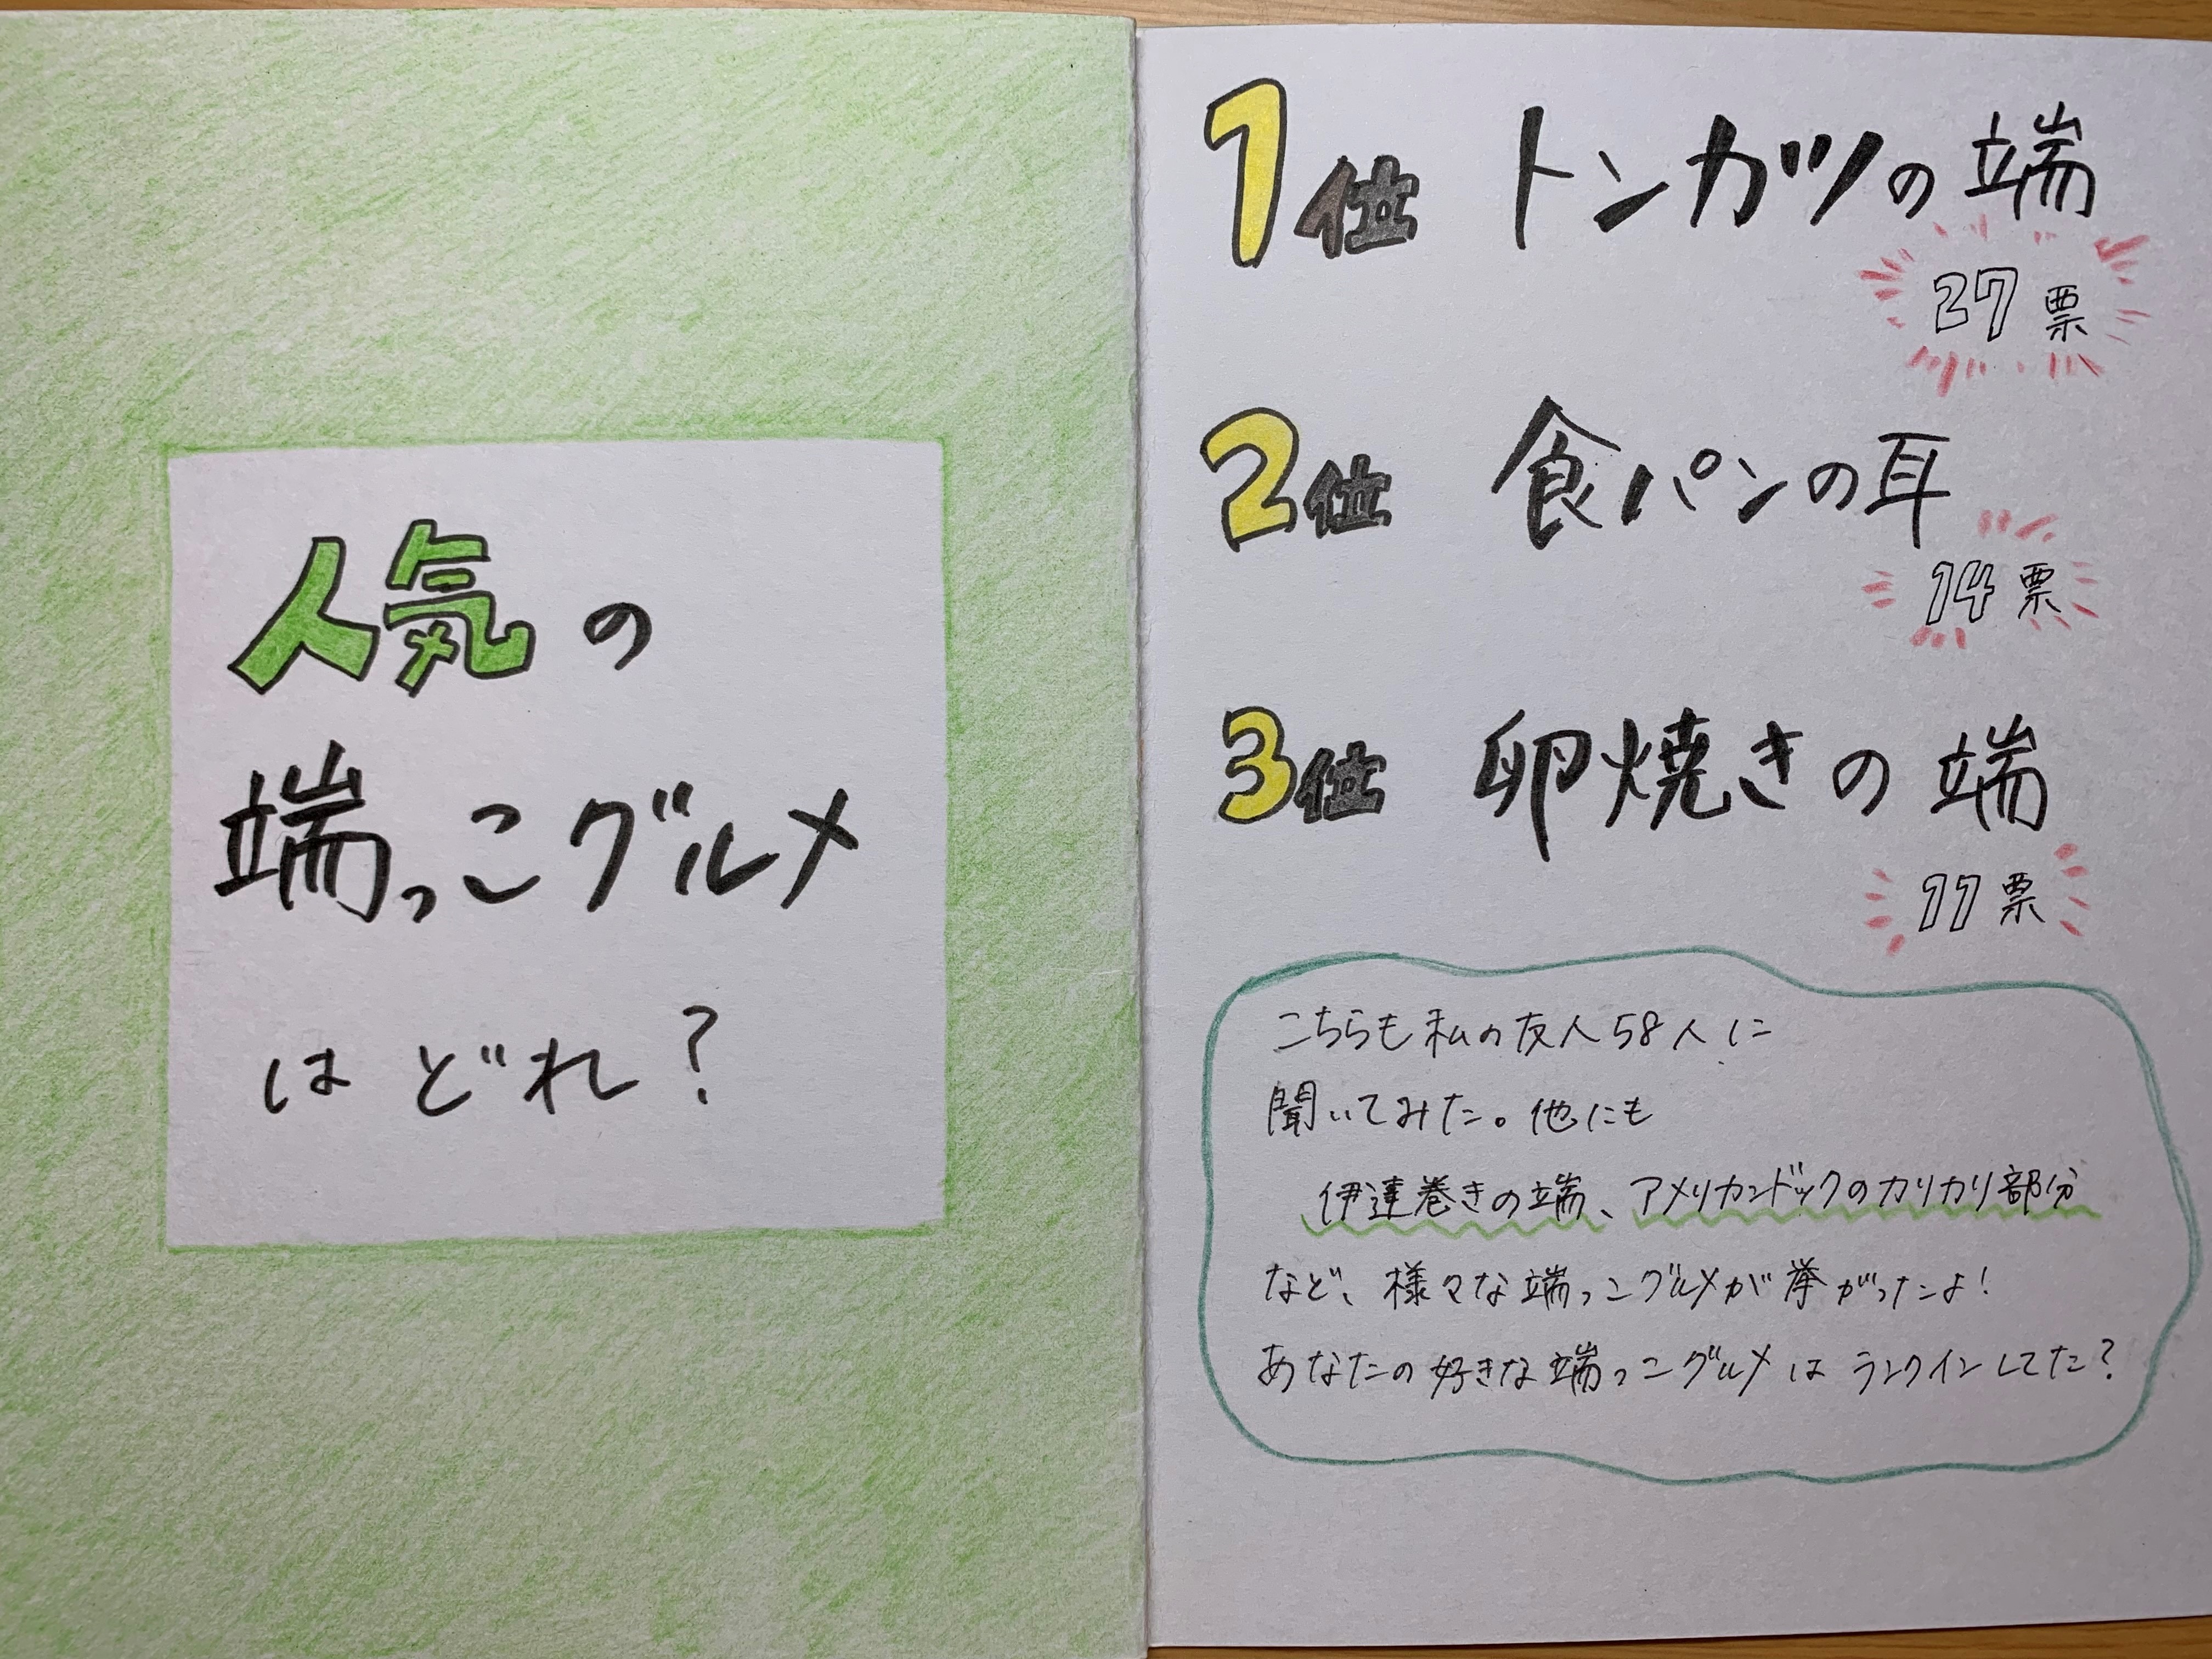 人気の
端っこグルメ
はどれ?
1位 トンカツの端
27票
2位 食パンの耳
14票
3位 卵焼きの端
11票
こちらも私の友人58人に
聞いてみた。他にも
伊達巻きの端、アメリカンドックのカリカリ部分
など、様々な端っこグルメが挙がったよ!
あなたの好きな端っこグルメはランクインしてた?